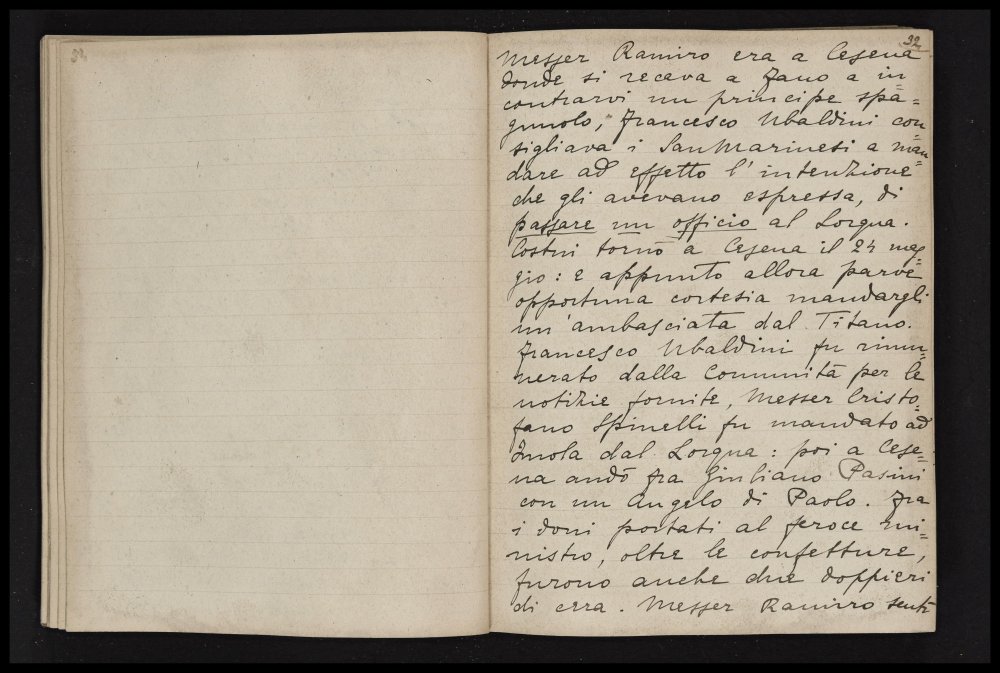 32
Messer Ramiro era a Cesena
donde si recava a Fano a in=
contrarvi un principe spa=
gnuolo, Francesco Ubaldini con=
sigliava i San Marinesi a man=
dare ad effetto l'intenzione
che gli avevano espressa, di
passare un officio al Lorqua.
Costui tornò a Cesena il 24 mag=
gio: e appunto allora parve
opportuna cortesia mandargli
un'ambasciata dal Titano.
Francesco Ubaldini fu rimu=
nerato dalla Comunità per le
notizie fornite, Messer Cristo=
fano Spinelli fu mandato ad
Imola dal Lorqua: poi a Cese=
na andò fra Giuliano Pasini
con un Angelo di Paolo. Fra
i doni portati al feroce mi=
nistro, oltre le confetture,
furono anche due doppieri
di cera. Messer Ramiro sentì